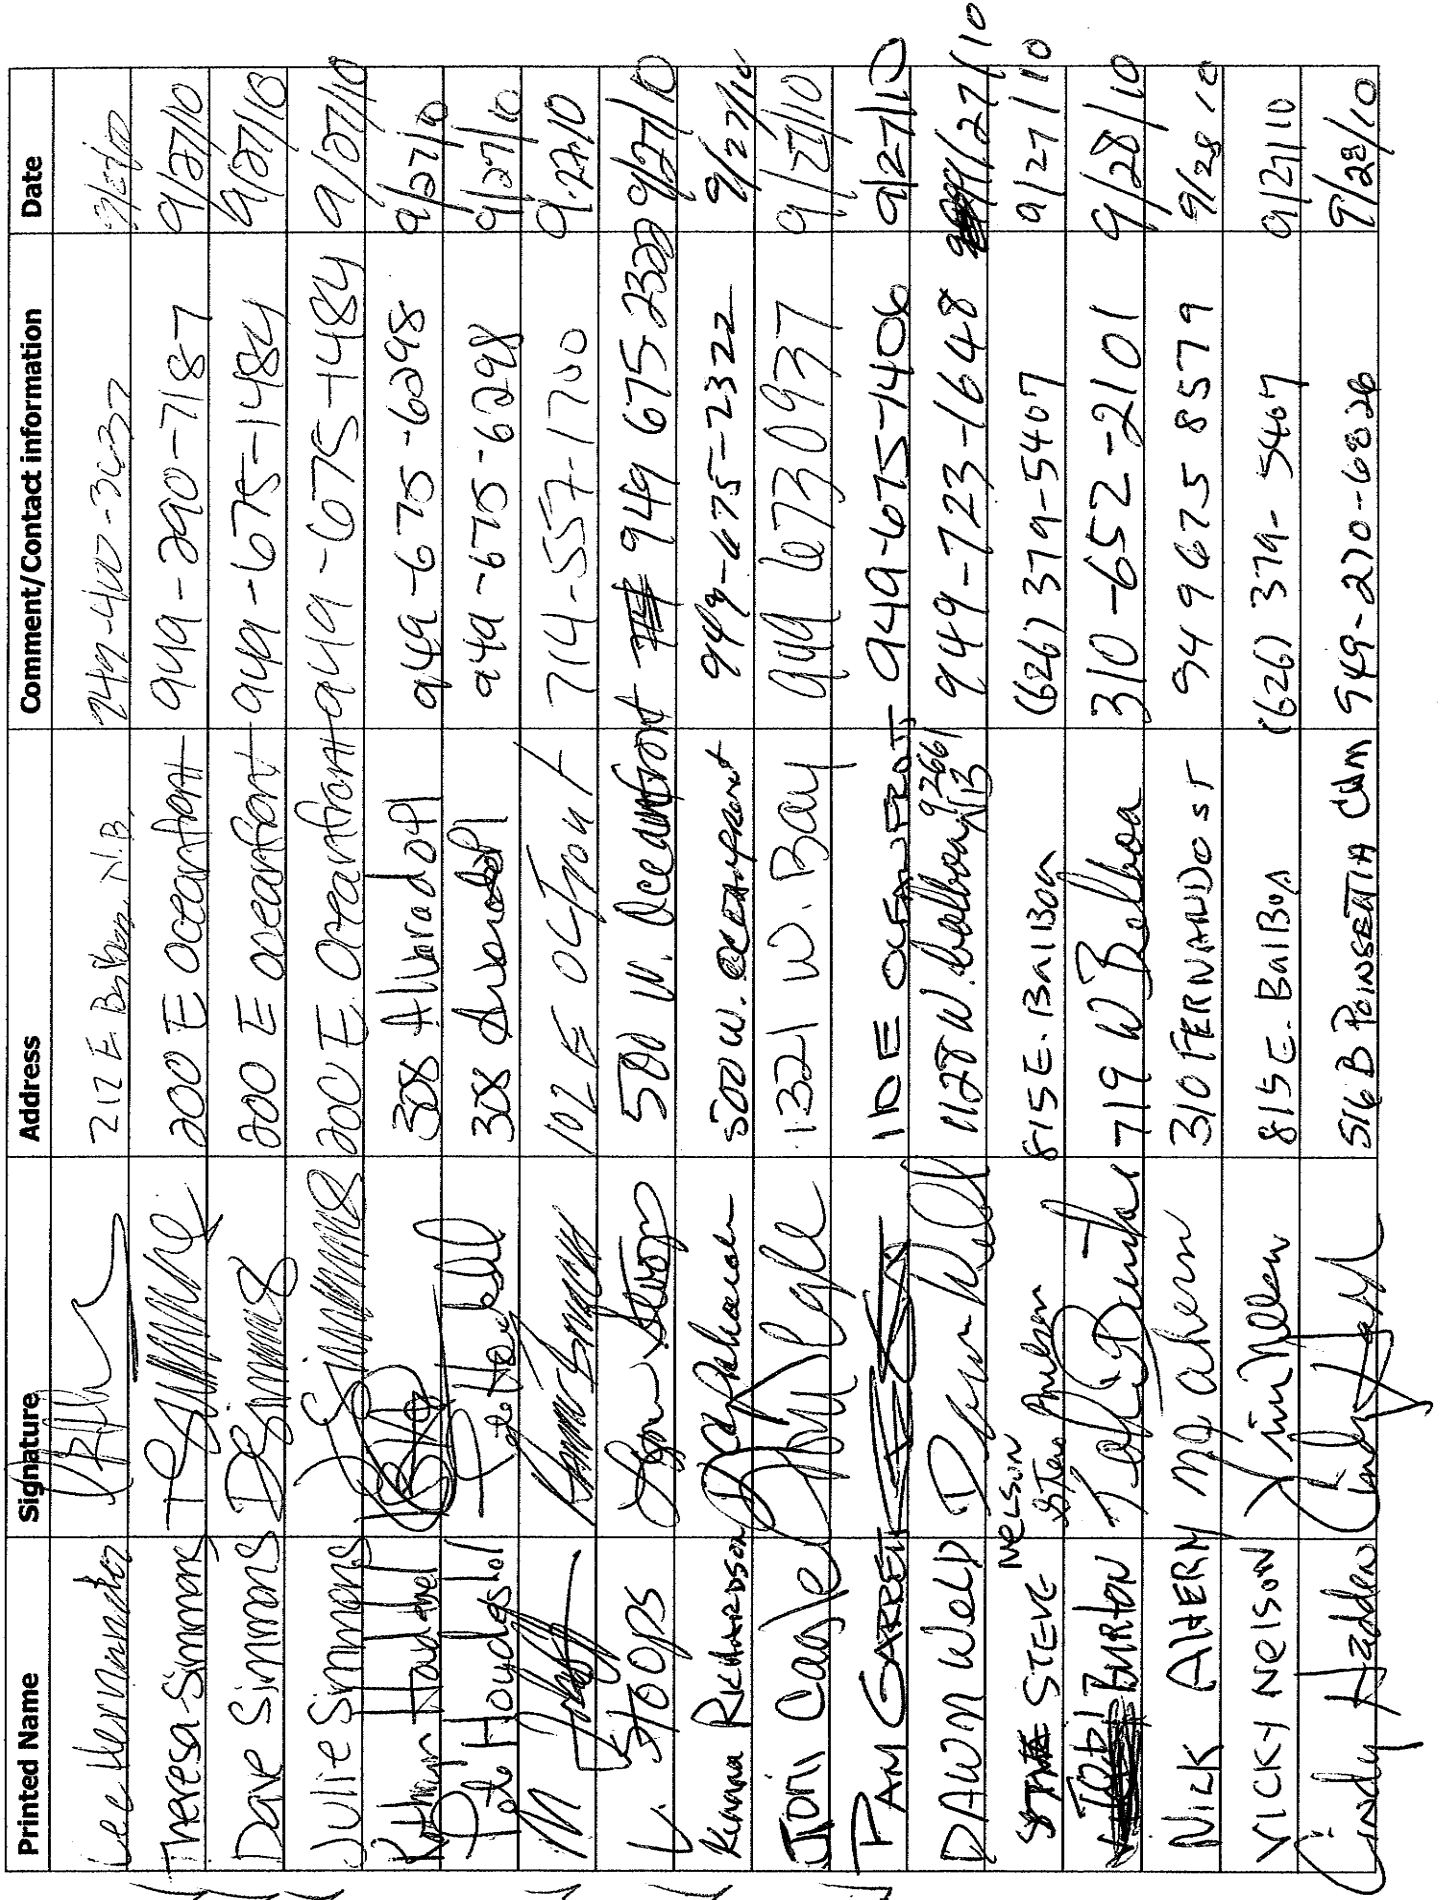 Printed Name Signature Address Comment/Contact information Date
Lee Hernandez 212 E. Balboa N.B. 949-400-3637
Theresa Simmons T Simmons 200 E oceanfront 949-290-7187 9/27/10
Dave Simmons D Simmons 200 E oceanfront 949-675-1484 9/27/10
Julie Simmons J Simmons 200 E. Oceanfront 949-675-1484 9/27/10
Kathryn 308 Alvarado Pl 949-675-6298 9/27/10
Pete 308 Alvarado Pl 949-675-6298 9/27/10
M 102 E OCFront 714-557-1700 9.27.10
L. Stoops Stoops 500 W. Oceanfront 949 675 2322 9/27/10
Kenana Richardson 500 W. Oceanfront 949-675-2322 9/27/10
Joni Cagle Cagle 1321 W. Bay 949 6730937 9/27/10
PAM GARRETT 110 E OCEANFRONT 949-675-7406 9/27/10
DAWN Weld Dawn Weld 1128 W. balboa NB 92661 949-723-1648 9/27/10
STEVE NELSON Steve Nelson 815 E. BalBoa (626) 379-5407 9/27/10
Tobi Burton 719 W Balboa 310-652-2101 9/28/10
NICK AHERN Ahern 310 FERNANDO ST 949 675 8579 9/28/10
VICKY NELSON 815 E. BalBoa (626) 379-5407 9/27/10
Cindy Hadden 516 B POINSETTIA CDM 949-270-6826 9/28/10